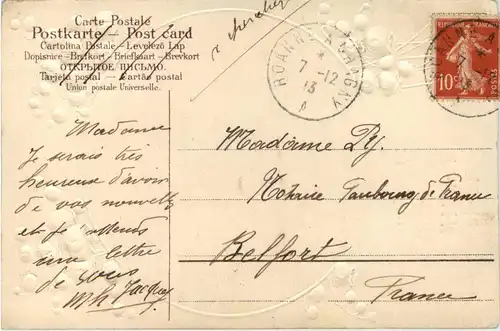 Carte Postale
Postkarte — Post card
Cartolina Postale — Levelező Lap
Dopisnice — Brefkort — Briefkaart — Brevkort
ОТКРЫТОЕ ПИСЬМО.
Tarjeta postal — Cartão postal
Union postale Universelle.
ROANNE A CHAGNY
7-12
13
10c
POSTES
Madame
Je serais très
heureuse d'avoir
de vos nouvelles
et je attends
une lettre
de vous
Mh Jacquey
Madame Py.
Notaire Faubourg de France
Belfort
France